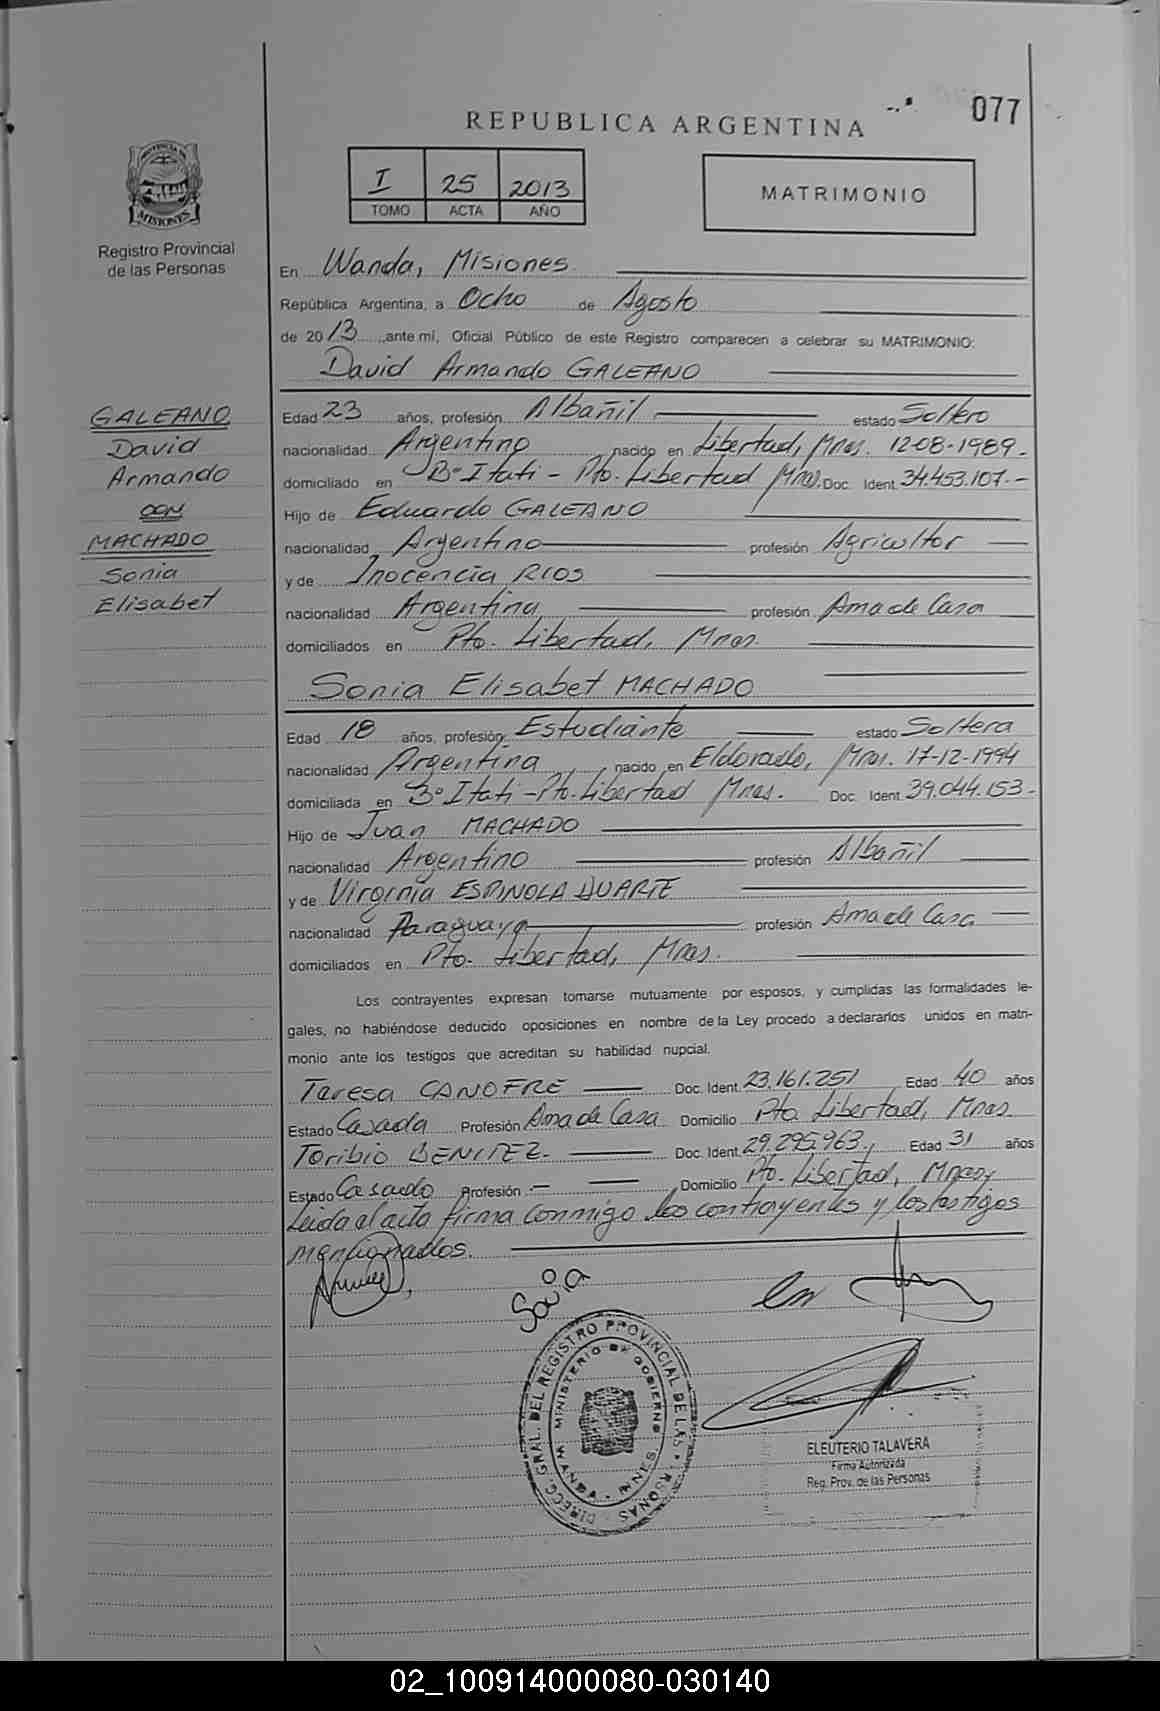 077
REPUBLICA ARGENTINA
PROVINCIA DE
MISIONES
Registro Provincial
de las Personas
I 25 2013
TOMO ACTA AÑO
MATRIMONIO
En Wanda, Misiones.
República Argentina, a Ocho de Agosto
de 2013, ante mí, Oficial Público de este Registro comparecen a celebrar su MATRIMONIO:
David Armando GALEANO
GALEANO
David
Armando
CON
MACHADO
Sonia
Elisabet
Edad 23 años, profesión Albañil estado Soltero
nacionalidad Argentino nacido en Libertad, Mnes. 12-08-1989.-
domiciliado en Bº Itati - Pto. Libertad Mnes. Doc. Ident. 34.453.107.-
Hijo de Eduardo GALEANO
nacionalidad Argentino profesión Agricultor
y de Inocencia RIOS
nacionalidad Argentina profesión Ama de Casa
domiciliados en Pto. Libertad, Mnes.
Sonia Elisabet MACHADO
Edad 18 años, profesión Estudiante estado Soltera
nacionalidad Argentina, nacido en Eldorado, Mnes. 17-12-1994
domiciliada en Bº Itati - Pto. Libertad Mnes. Doc. Ident. 39.044.153.-
Hijo de Juan MACHADO
nacionalidad Argentino profesión Albañil
y de Virginia ESPINOLA DUARTE
nacionalidad Paraguaya profesión Ama de Casa
domiciliados en Pto. Libertad, Mnes.
Los contrayentes expresan tomarse mutuamente por esposos, y cumplidas las formalidades le-
gales, no habiéndose deducido oposiciones en nombre de la Ley procedo a declararlos unidos en matri-
monio ante los testigos que acreditan su habilidad nupcial.
Teresa CANOFRE Doc. Ident. 23.161.251 Edad 40 años
Estado Casada Profesión Ama de Casa Domicilio Pto. Libertad, Mnes.
Toribio BENITEZ. Doc. Ident. 29.295.963, Edad 31 años
Estado Casado Profesión - Domicilio Pto. Libertad, Mnes,
Leida el acta firma conmigo los contrayentes y los testigos
mencionados.
Sonia
DIRECC. GRAL. DEL REGISTRO PROVINCIAL DE LAS PERSONAS
MINISTERIO DE GOBIERNO
WANDA - MNES.
ELEUTERIO TALAVERA
Firma Autorizada
Reg. Prov. de las Personas
02_100914000080-030140